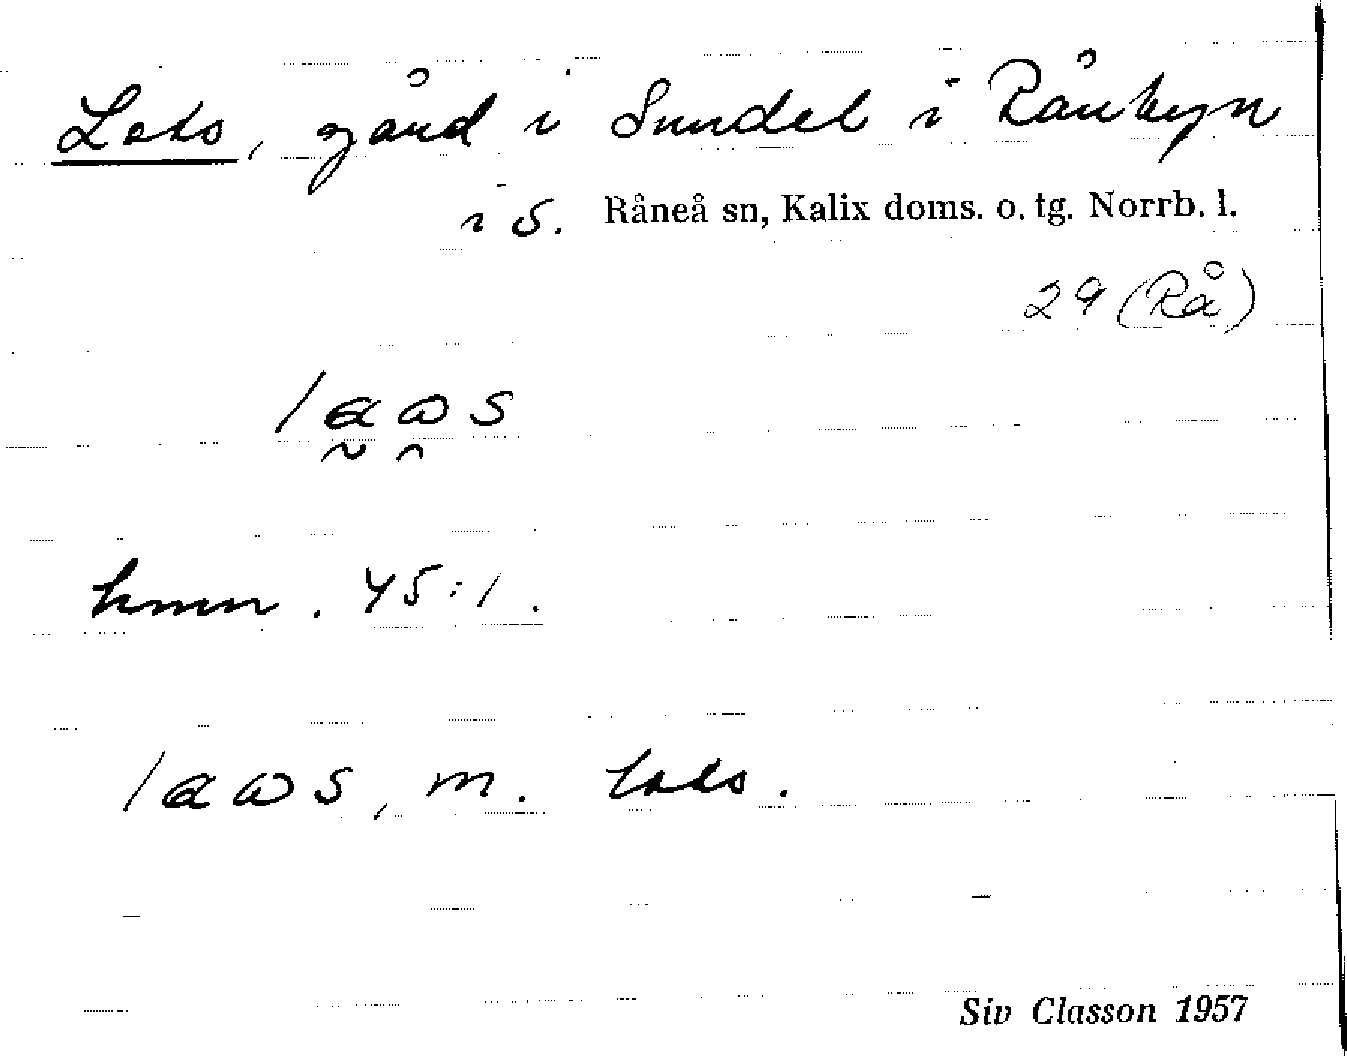 Lots, gård i Sundel i Rånbyn
i S. Råneå sn, Kalix doms. o. tg. Norrb. l.
29 (Rå)
laωs
hmn. 45:1.
laωs, m. lots.
Siv Classon 1957